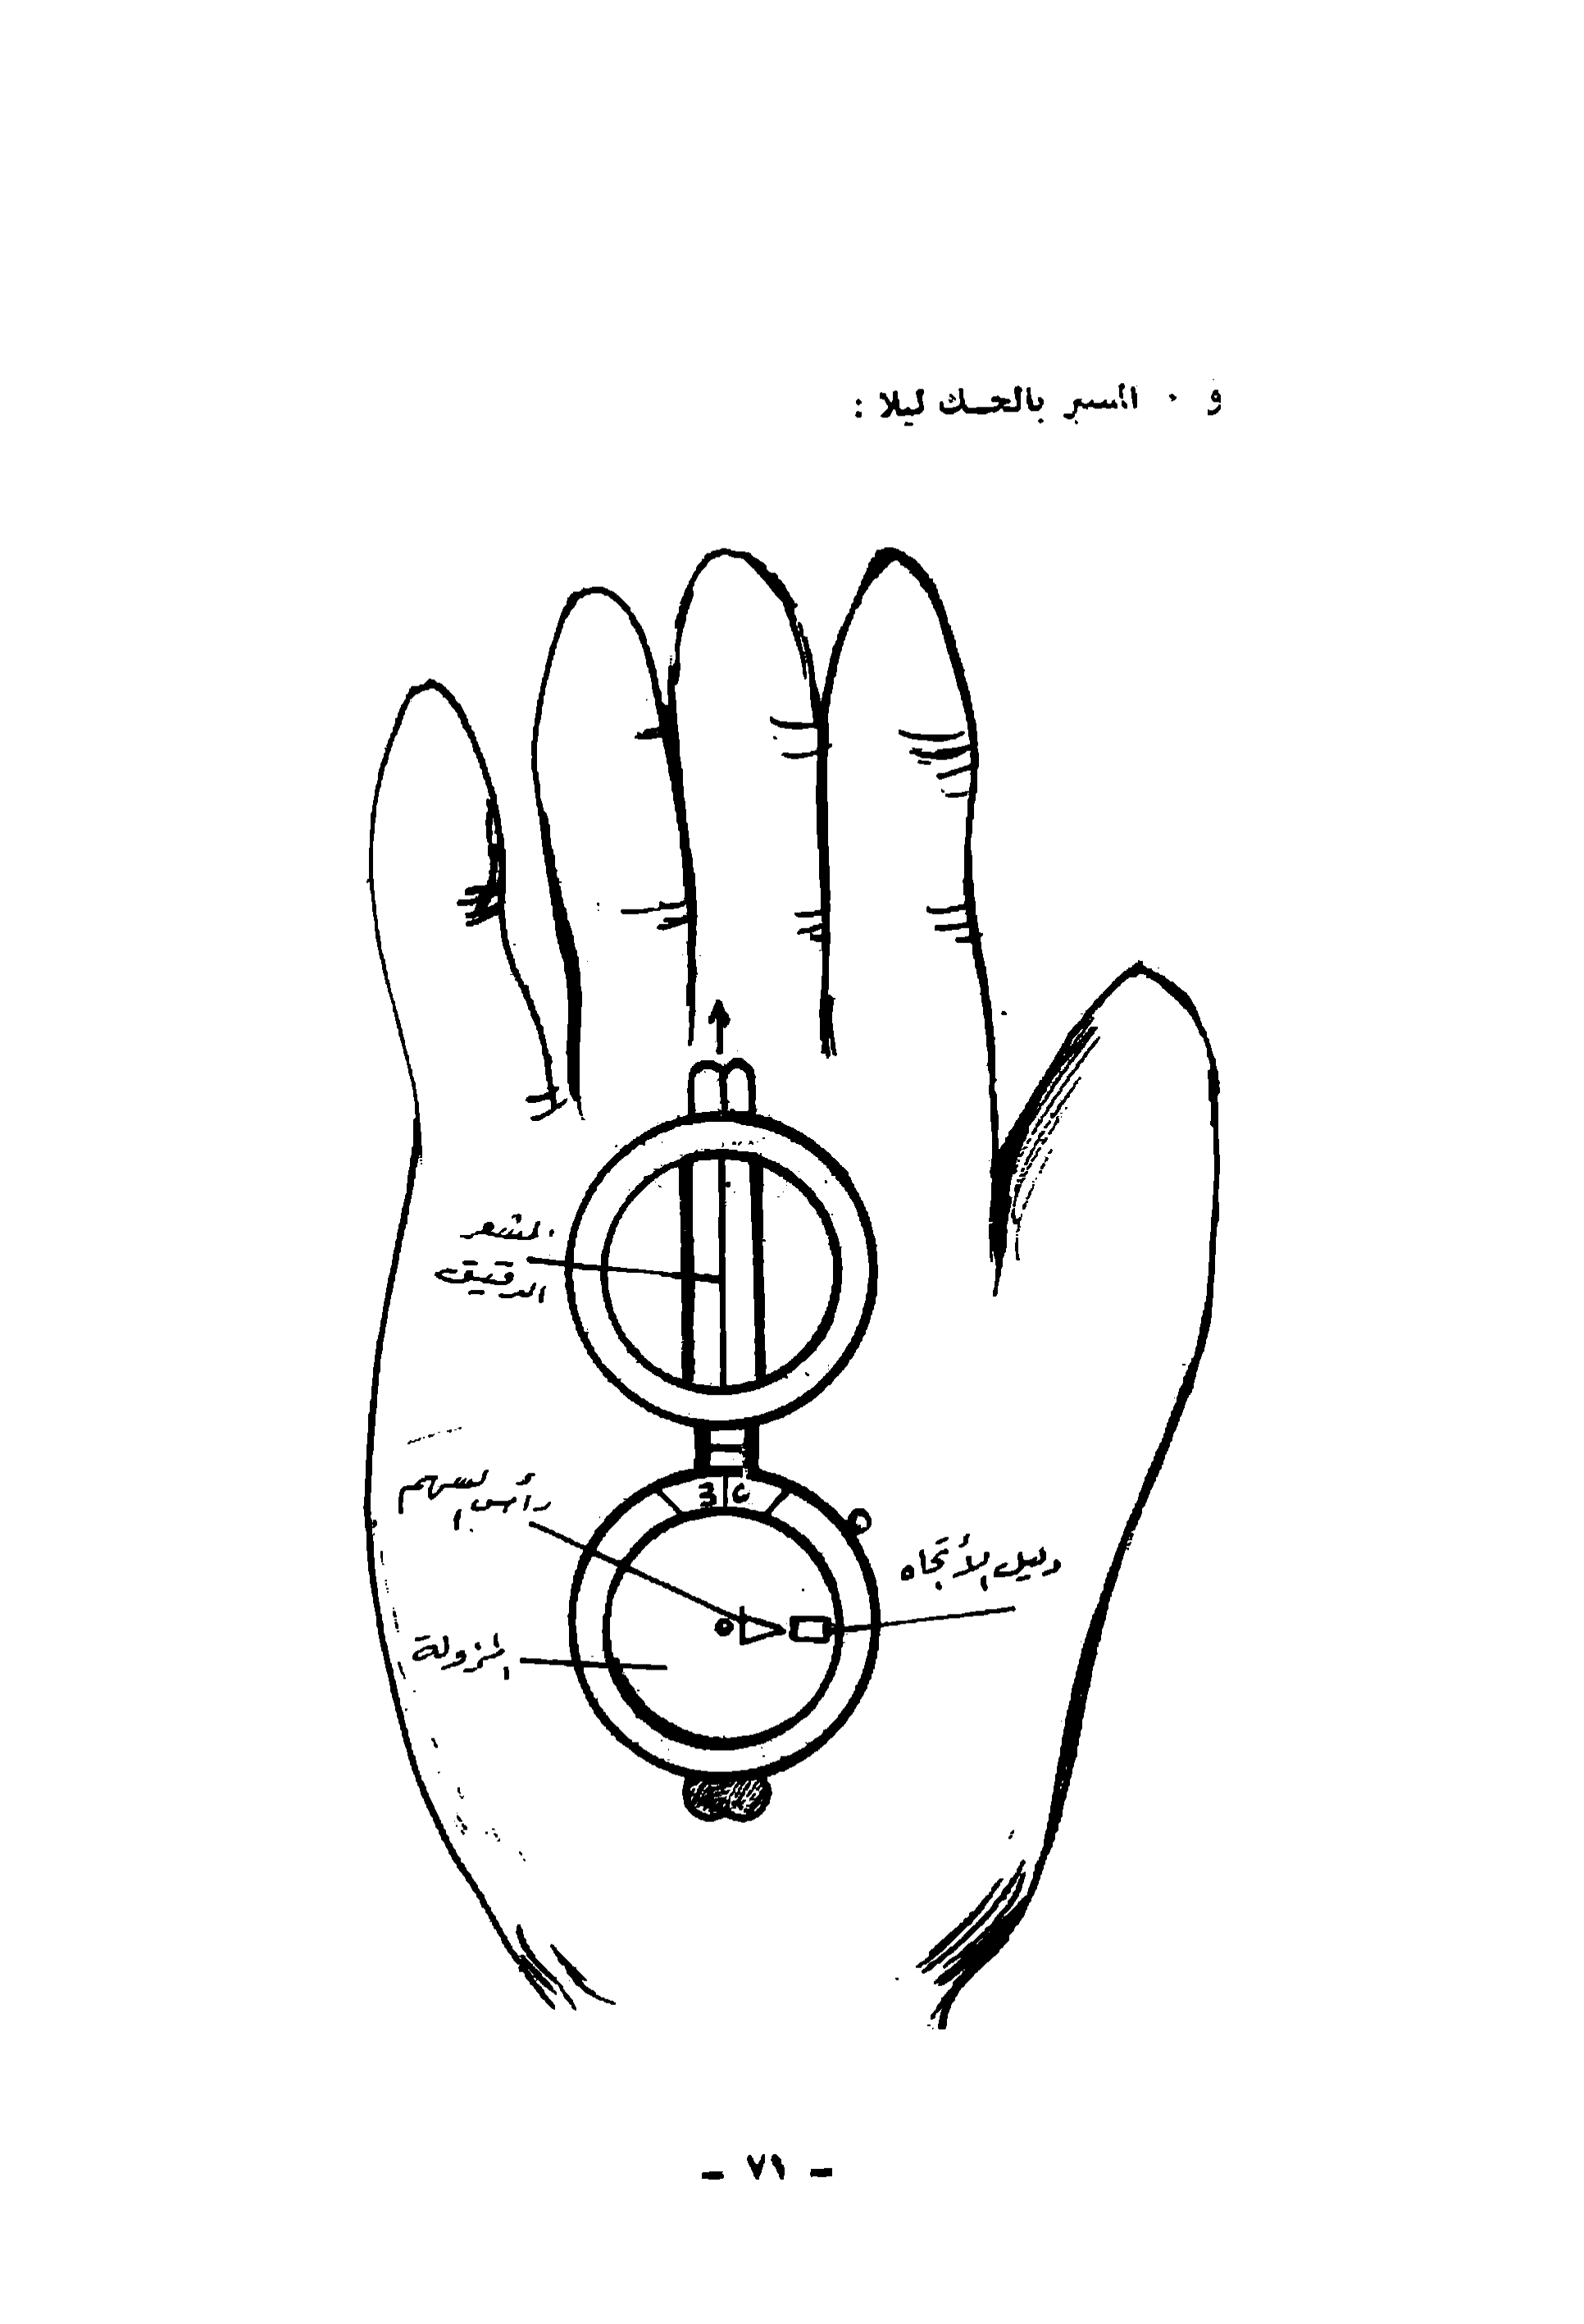 و ٠ السير بالحك ليلا :
الشعر
الدقيق
رأس السهم
30
دليل الأتجاه
المزولة
- ٧١ -